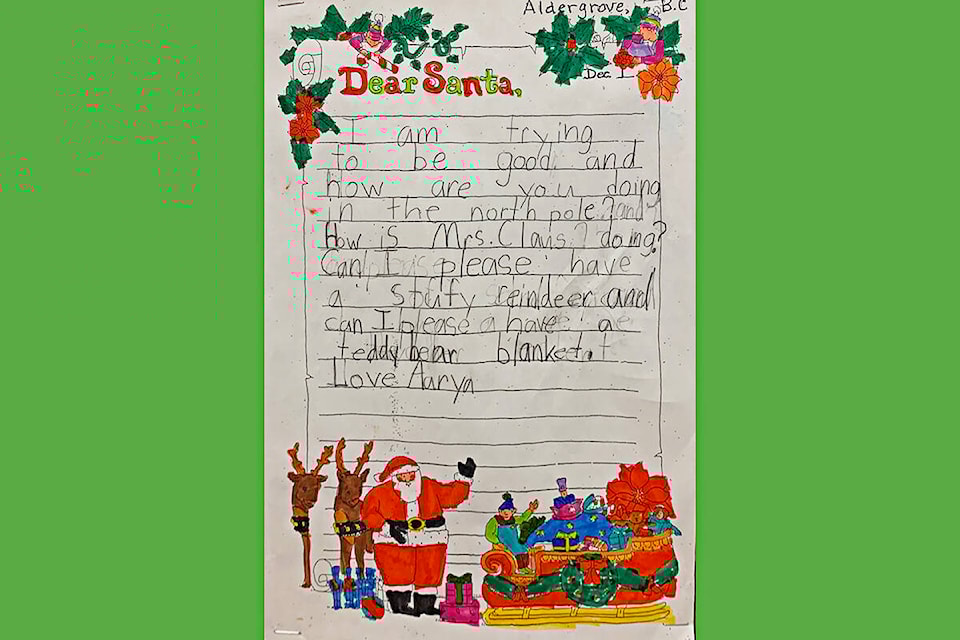 Aldergrove, B.C
Dec. 1
Dear Santa,
I am trying
to be good and
how are you doing
in the north pole? and
How is Mrs. Claus doing?
Can I please have
a stuffy reindeer and
can I please have a
teddy bear blanket.
Love Aarya